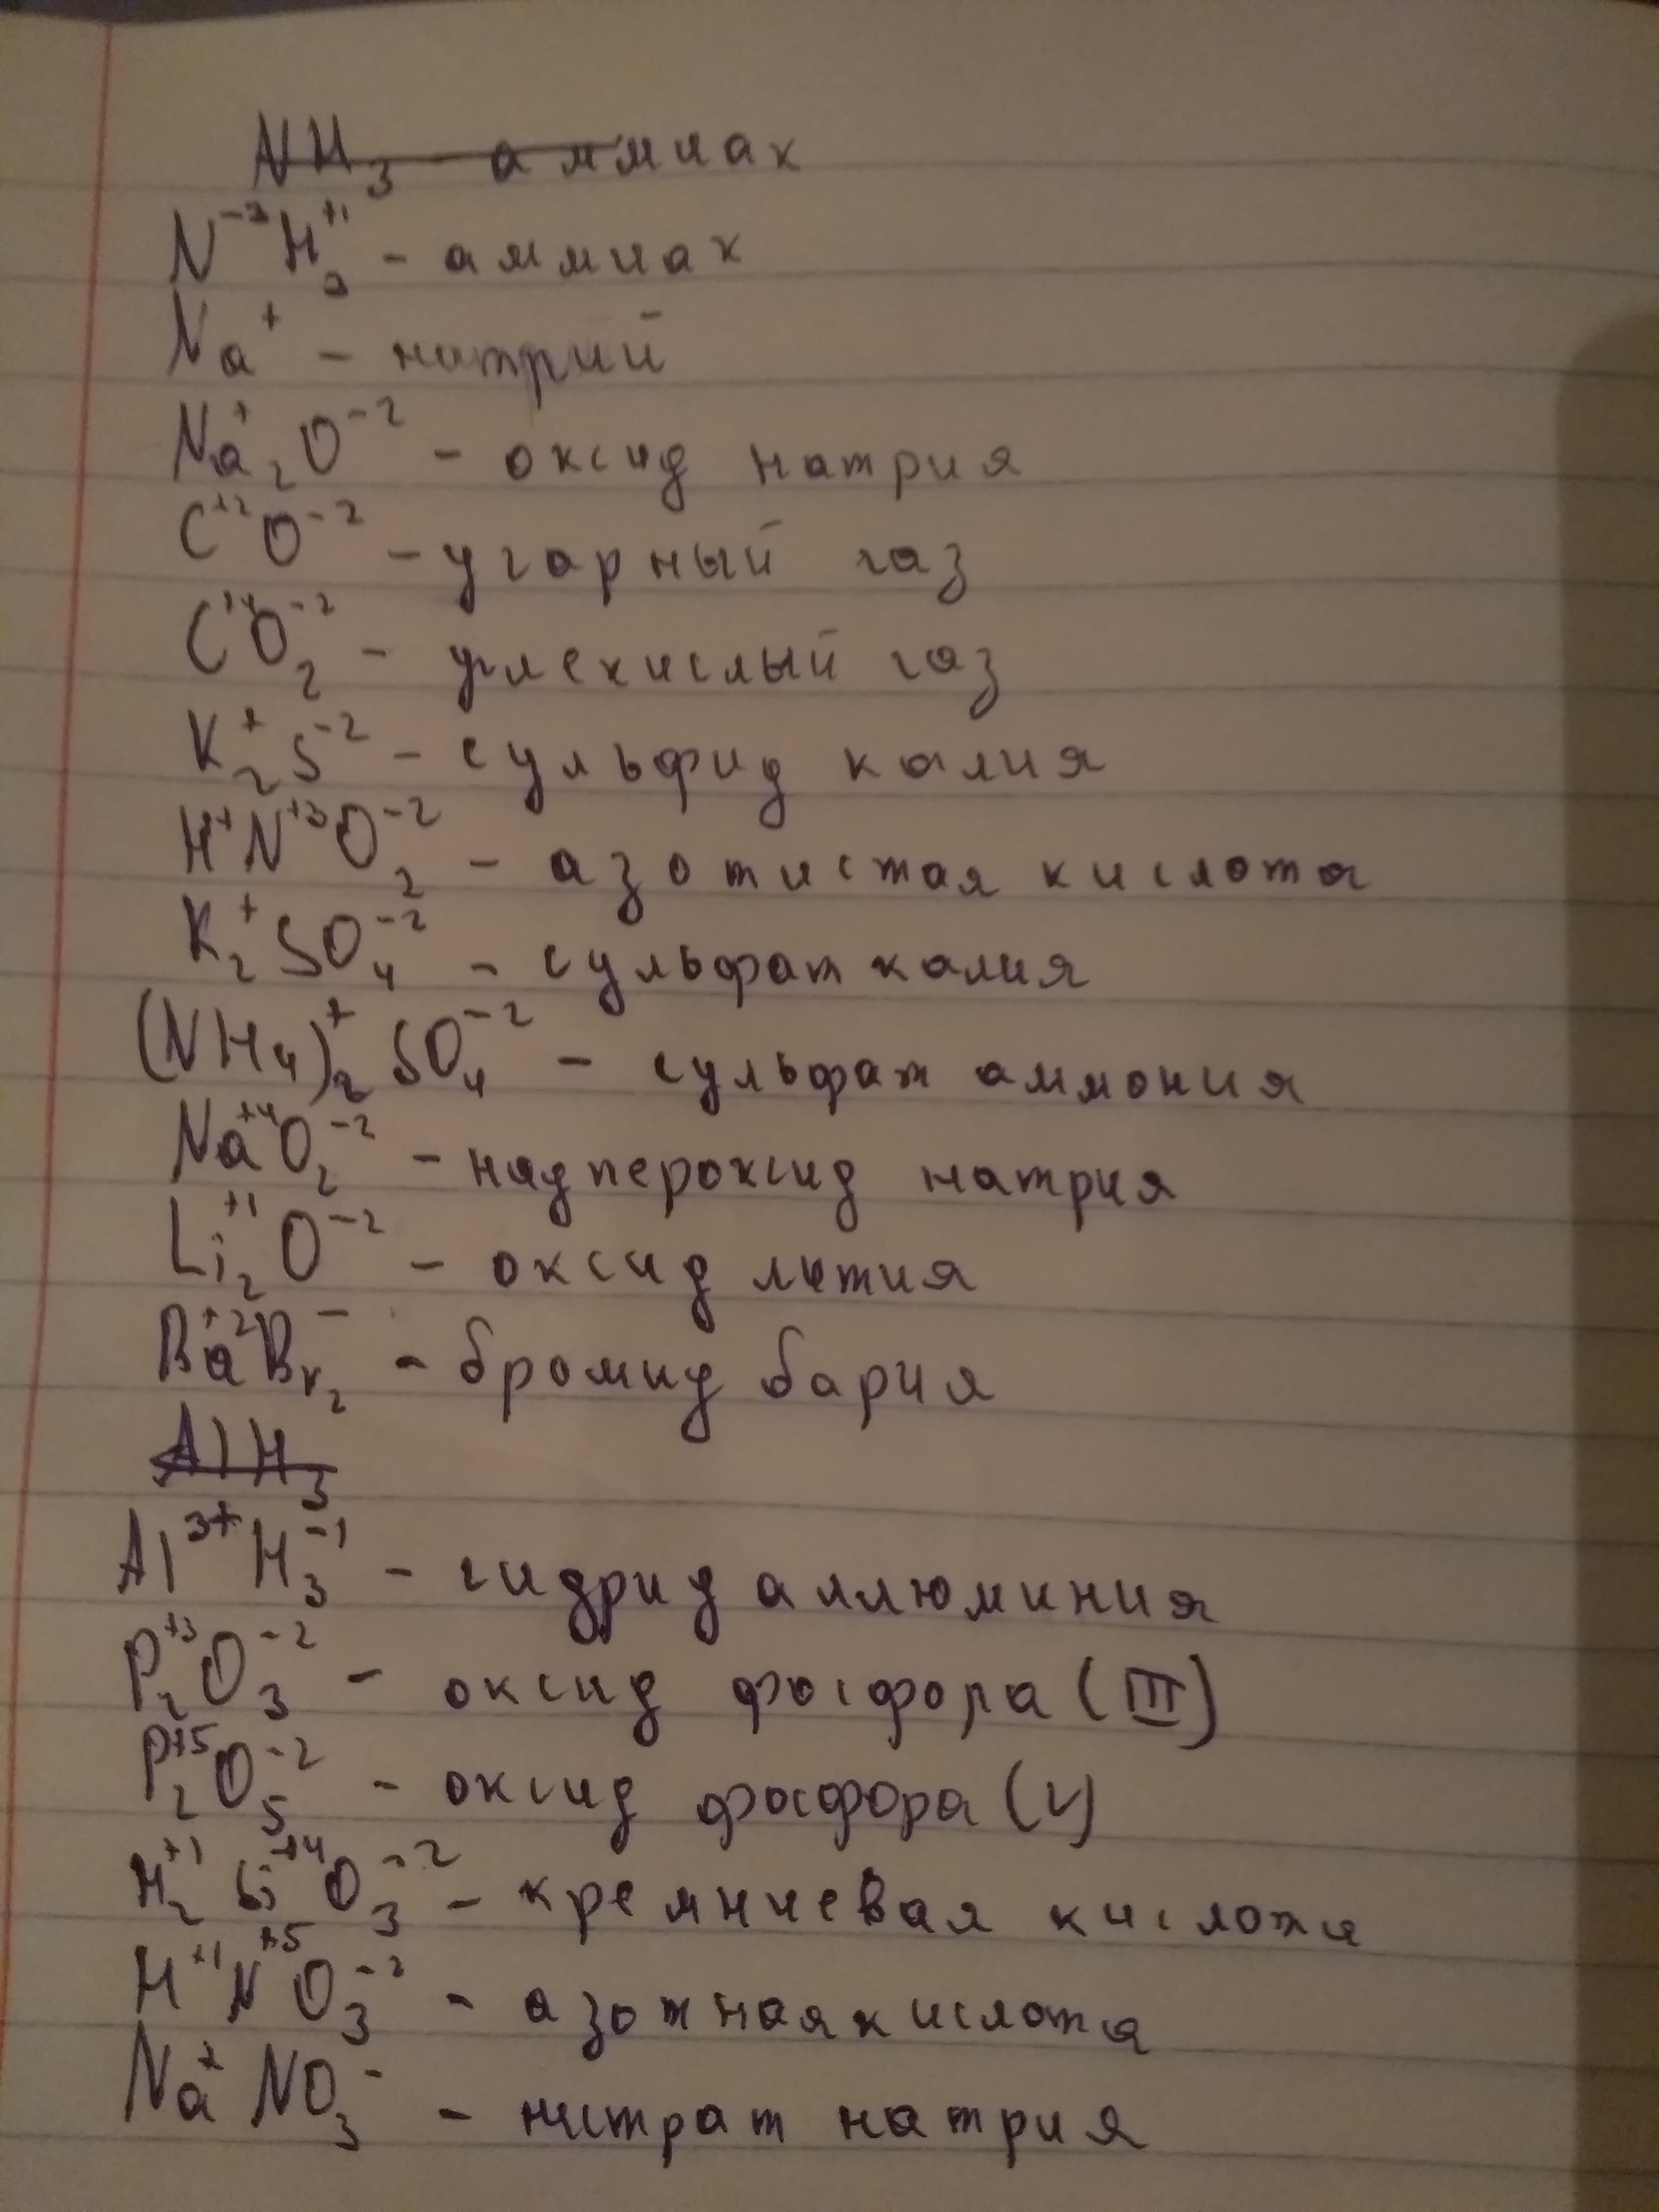 NH₃ - аммиак
N⁻³H⁺¹₃ - аммиак
Na⁺ - натрий
Na⁺₂O⁻² - оксид натрия
C⁺²O⁻² - угарный газ
C⁺⁴O₂⁻² - углекислый газ
K₂⁺S⁻² - сульфид калия
H⁺N⁺³O₂⁻² - азотистая кислота
K₂⁺SO₄⁻² - сульфат калия
(NH₄)₂⁺SO₄⁻² - сульфат аммония
Na⁺⁴O₂⁻² - надпероксид натрия
Li₂⁺¹O⁻² - оксид лития
Ba⁺²Br₂⁻ - бромид бария
AlH₃
Al³⁺H₃⁻¹ - гидрид аллюминия
P₂⁺³O₃⁻² - оксид фосфора (III)
P₂⁺⁵O₅⁻² - оксид фосфора (V)
H₂⁺¹Si⁺⁴O₃⁻² - кремниевая кислота
H⁺¹N⁺⁵O₃⁻² - азотная кислота
Na⁺NO₃⁻ - нитрат натрия